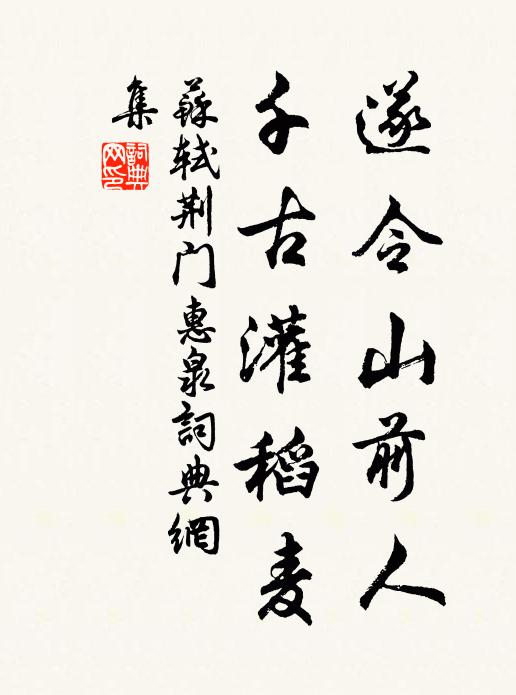 遂令山前人
千古灌稻麦
蘇軾荆门惠泉詞典網
集
詞典
网印